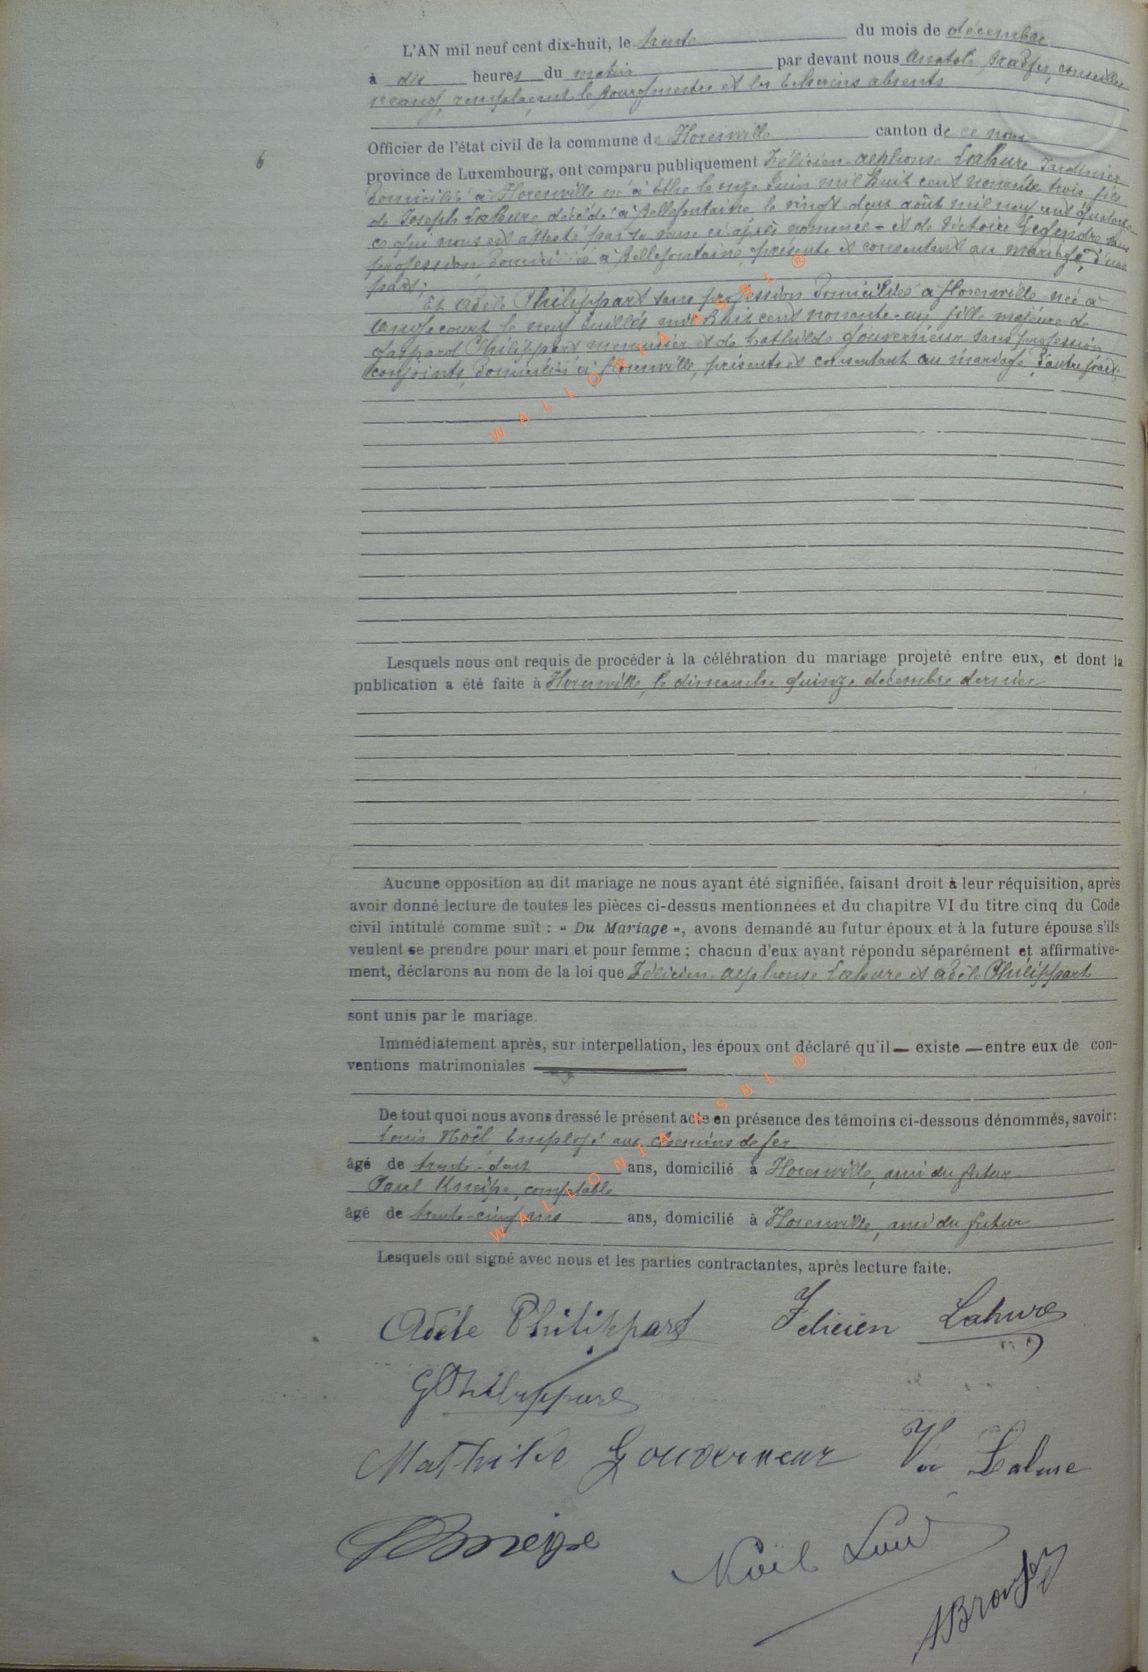 L'AN mil neuf cent dix-huit, le trente du mois de décembre
à dix heures du matin par devant nous Anatole conseiller
remplaçant le Bourgmestre et les Echevins absents
Officier de l'état civil de la commune de Florenville canton de ce nom
6
province de Luxembourg, ont comparu publiquement Félicien-Alphonse Lahure Jardinier
domicilié à Florenville né à Ethe le onze Juin mil huit cent nonante trois, fils
de Joseph Lahure décédé à Bellefontaine le vingt deux août mil neuf cent quatorze
ce qui nous est attesté par la mère ci après nommée - et de Victoire Legendre sans
profession, domiciliée à Bellefontaine, présente et consentant au mariage, d'une
part;
Et Adèle Philippart sans profession domiciliée à Florenville née à
le neuf Juillet mil huit cent nonante-un fille majeure de
Gaspard Philippart menuisier et de Mathilde Gouverneur sans profession
conjoints, domiciliés à Florenville, présents et consentant au mariage, d'autre part,
Lesquels nous ont requis de procéder à la célébration du mariage projeté entre eux, et dont la
publication a été faite à Florenville, le dimanche quinze décembre dernier
Aucune opposition au dit mariage ne nous ayant été signifiée, faisant droit à leur réquisition, après
avoir donné lecture de toutes les pièces ci-dessus mentionnées et du chapitre VI du titre cinq du Code
civil intitulé comme suit : « Du Mariage », avons demandé au futur époux et à la future épouse s'ils
veulent se prendre pour mari et pour femme ; chacun d'eux ayant répondu séparément et affirmative-
ment, déclarons au nom de la loi que Félicien-Alphonse Lahure et Adèle Philippart
sont unis par le mariage.
Immédiatement après, sur interpellation, les époux ont déclaré qu'il — existe — entre eux de con-
ventions matrimoniales
De tout quoi nous avons dressé le présent acte en présence des témoins ci-dessous dénommés, savoir :
Louis Noël Employé aux chemins de fer
âgé de ans, domicilié à Florenville, ami du futur
Paul Kneipe, comptable
âgé de trente-cinq ans ans, domicilié à Florenville, ami du futur
Lesquels ont signé avec nous et les parties contractantes, après lecture faite.
Adèle Philippart Felicien Lahure
G Philippart
Mathilde Gouverneur Ve Lahure
Kneipe
Noël Louis
WALLONIA ASBL ®
WALLONIA ASBL ®